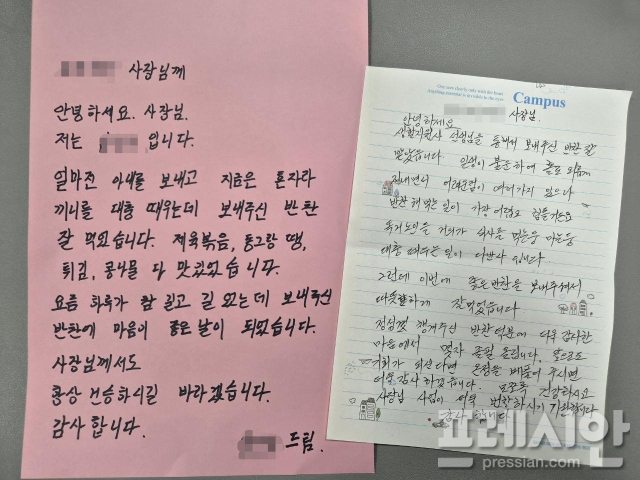 사장님께
안녕하세요. 사장님.
저는 입니다.
얼마전 아내를 보내고 지금은 혼자라
끼니를 대충 때우는데 보내주신 반찬
잘 먹었습니다. 제육볶음, 동그랑 땡,
튀김, 콩나물 다 맛있었습니다.
요즘 하루가 참 길고 길 었는데 보내주신
반찬에 마음이 좋은 날이 되었습니다.
사장님께서도
항상 건승하시길 바라겠습니다.
감사 합니다.
드림.
Campus
사장님.
안녕하세요
생활지원사 선생님을 통해서 보내주신 반찬 잘
받았습니다 일생이 불운하여 홀로 외롭게
지내면서 어려운점이 여러가지 있으나
반찬 해먹는 일이 가장 어렵고 힘들거든요
독거노인들 거의가 식사를 먹는둥 마는둥
대충 때우는 일이 다반사 입니다
그런데 이번에 좋은 반찬을 보내주셔서
따뜻하게 잘먹었습니다
정성껏 챙겨주신 반찬 덕분에 너무 감사한
마음에서 몇자 올립니다, 앞으로도
기회가 되신다면 온정을 베풀어 주시면
감사 하겠습니다. 모쪼록 건강하시고
사장님 사업이 더욱 번창하시기 기원합니다
감사 합니다
프레시안
pressian.com